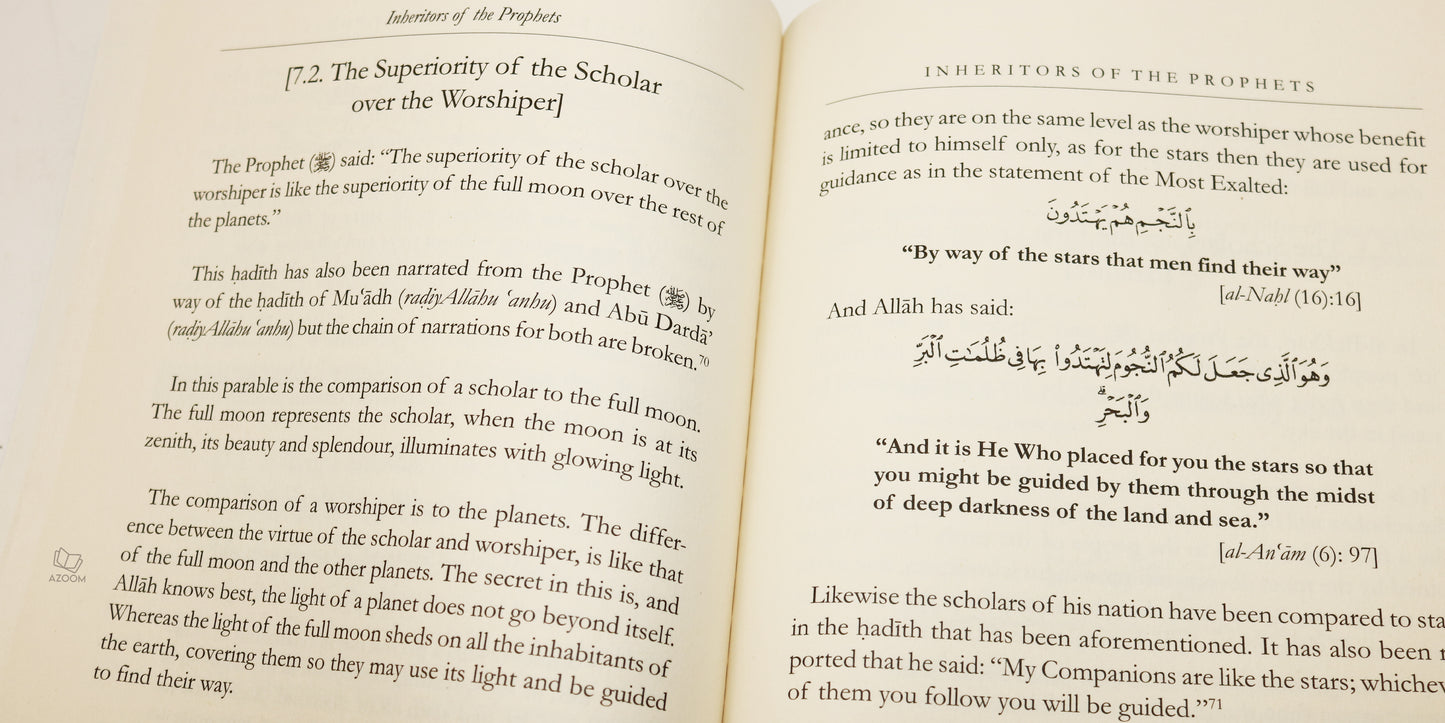 Inheritors of the Prophets
[7.2. The Superiority of the Scholar
over the Worshiper]
The Prophet (ﷺ) said: “The superiority of the scholar over the
worshiper is like the superiority of the full moon over the rest of
the planets.”
This ḥadīth has also been narrated from the Prophet (ﷺ) by
way of the ḥadīth of Mu‘ādh (raḍiyAllāhu ‘anhu) and Abū Dardā’
(raḍiyAllāhu ‘anhu) but the chain of narrations for both are broken.70
In this parable is the comparison of a scholar to the full moon.
The full moon represents the scholar, when the moon is at its
zenith, its beauty and splendour, illuminates with glowing light.
The comparison of a worshiper is to the planets. The differ-
ence between the virtue of the scholar and worshiper, is like that
of the full moon and the other planets. The secret in this is, and
Allāh knows best, the light of a planet does not go beyond itself.
Whereas the light of the full moon sheds on all the inhabitants of
the earth, covering them so they may use its light and be guided
to find their way.
AZOOM
INHERITORS OF THE PROPHETS
ance, so they are on the same level as the worshiper whose benefit
is limited to himself only, as for the stars then they are used for
guidance as in the statement of the Most Exalted:
بِٱلنَّجْمِ هُمْ يَهْتَدُونَ
“By way of the stars that men find their way”
[al-Naḥl (16):16]
And Allāh has said:
وَهُوَ ٱلَّذِى جَعَلَ لَكُمُ ٱلنُّجُومَ لِتَهْتَدُوا۟ بِهَا فِى ظُلُمَٰتِ ٱلْبَرِّ
وَٱلْبَحْرِ ۗ
“And it is He Who placed for you the stars so that
you might be guided by them through the midst
of deep darkness of the land and sea.”
[al-An‘ām (6): 97]
Likewise the scholars of his nation have been compared to sta
in the ḥadīth that has been aforementioned. It has also been r
ported that he said: “My Companions are like the stars; whichev
of them you follow you will be guided.”71